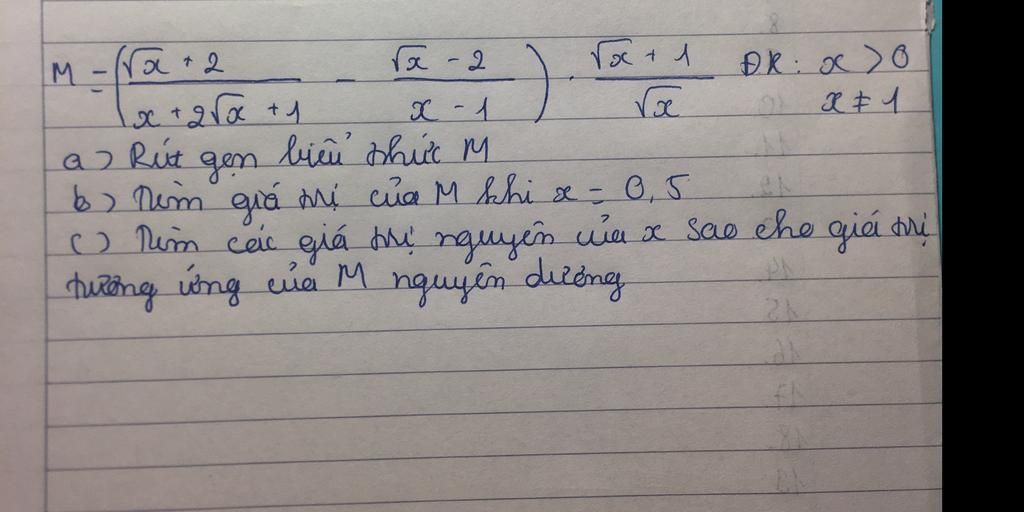 M = ( (√x + 2)/(x + 2√x + 1) - (√x - 2)/(x - 1) ) . (√x + 1)/√x ĐK: x > 0
x ≠ 1
a) Rút gọn biểu thức M
b) Tìm giá trị của M khi x = 0,5
c) Tìm các giá trị nguyên của x sao cho giá trị
tương ứng của M nguyên dương